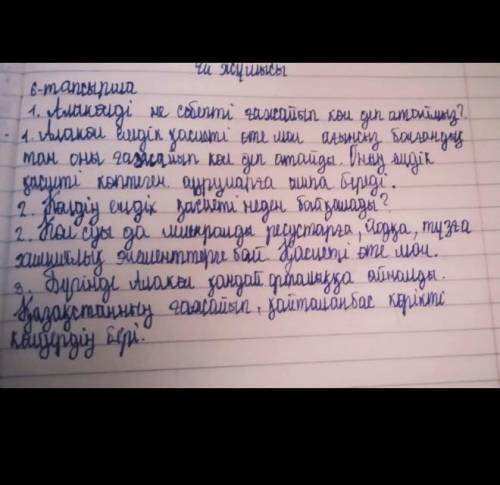 Үй жұмысы
6-тапсырма
1. Алакөлді не себепті ғажайып көл деп атаймыз?
1. Алакөл емдік қасиеті өте мол ағынсыз болғандық
тан оны ғажайып көл деп атайды. Оның емдік
қасиеті көптеген ауруларға шипа береді.
2. Көлдің емдік қасиеті неден байқалады?
2. Көл суы да минералды ресустарға, йодқа, тұзға
химиялық элементтерге бай. Қасиеті өте мол.
3. Бүгінде Алакөл қандай орталыққа айналды.
Қазақстанның ғажайып, қайталанбас көрікті
көлдердің бері.